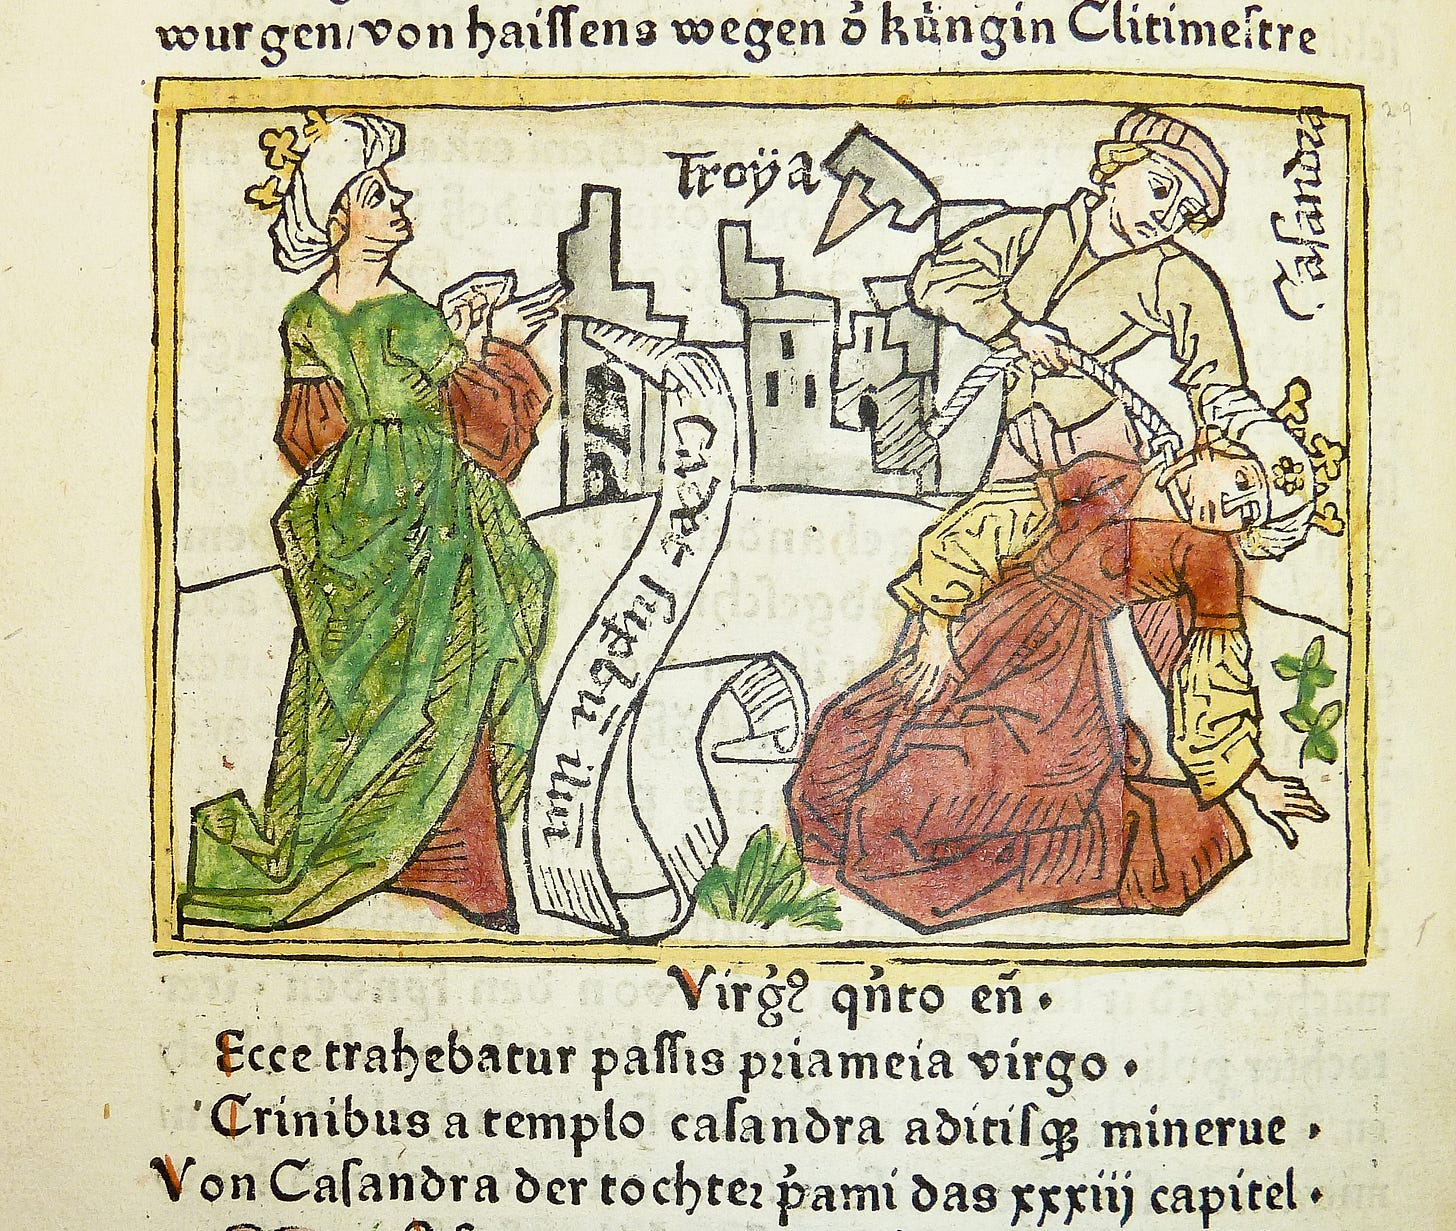 wurgen/von haissens wegen ð küngin Clitimestre
Troÿa
Casandra
Virgꝰ qn̄to en̄.
Ecce trahebatur passis priameia virgo.
Crinibus a templo casandra aditisqꝫ minerue.
Von Casandra der tochter p̄ami das xxxiij capitel.